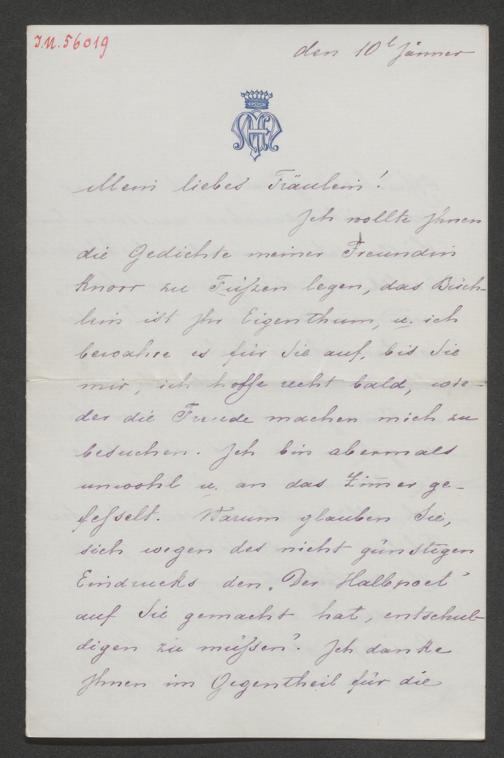 I.N. 56019
den 10t Jänner
Mein liebes Fräulein!
Ich wollte Ihnen
die Gedichte meiner Freundin
Knorr zu Füßen legen, das Büch-
lein ist Ihr Eigenthum, u. ich
bewahre es für Sie auf, bis Sie
mir, ich hoffe recht bald, wie-
der die Freude machen mich zu
besuchen. Ich bin abermals
unwohl u. an das Zim̅er ge-
feßelt. Warum glauben Sie,
sich wegen des nicht günstigen
Eindrucks den „Der Halbpoet"
auf Sie gemacht hat, entschul-
digen zu müßen? Ich danke
Ihnen im Gegentheil für die